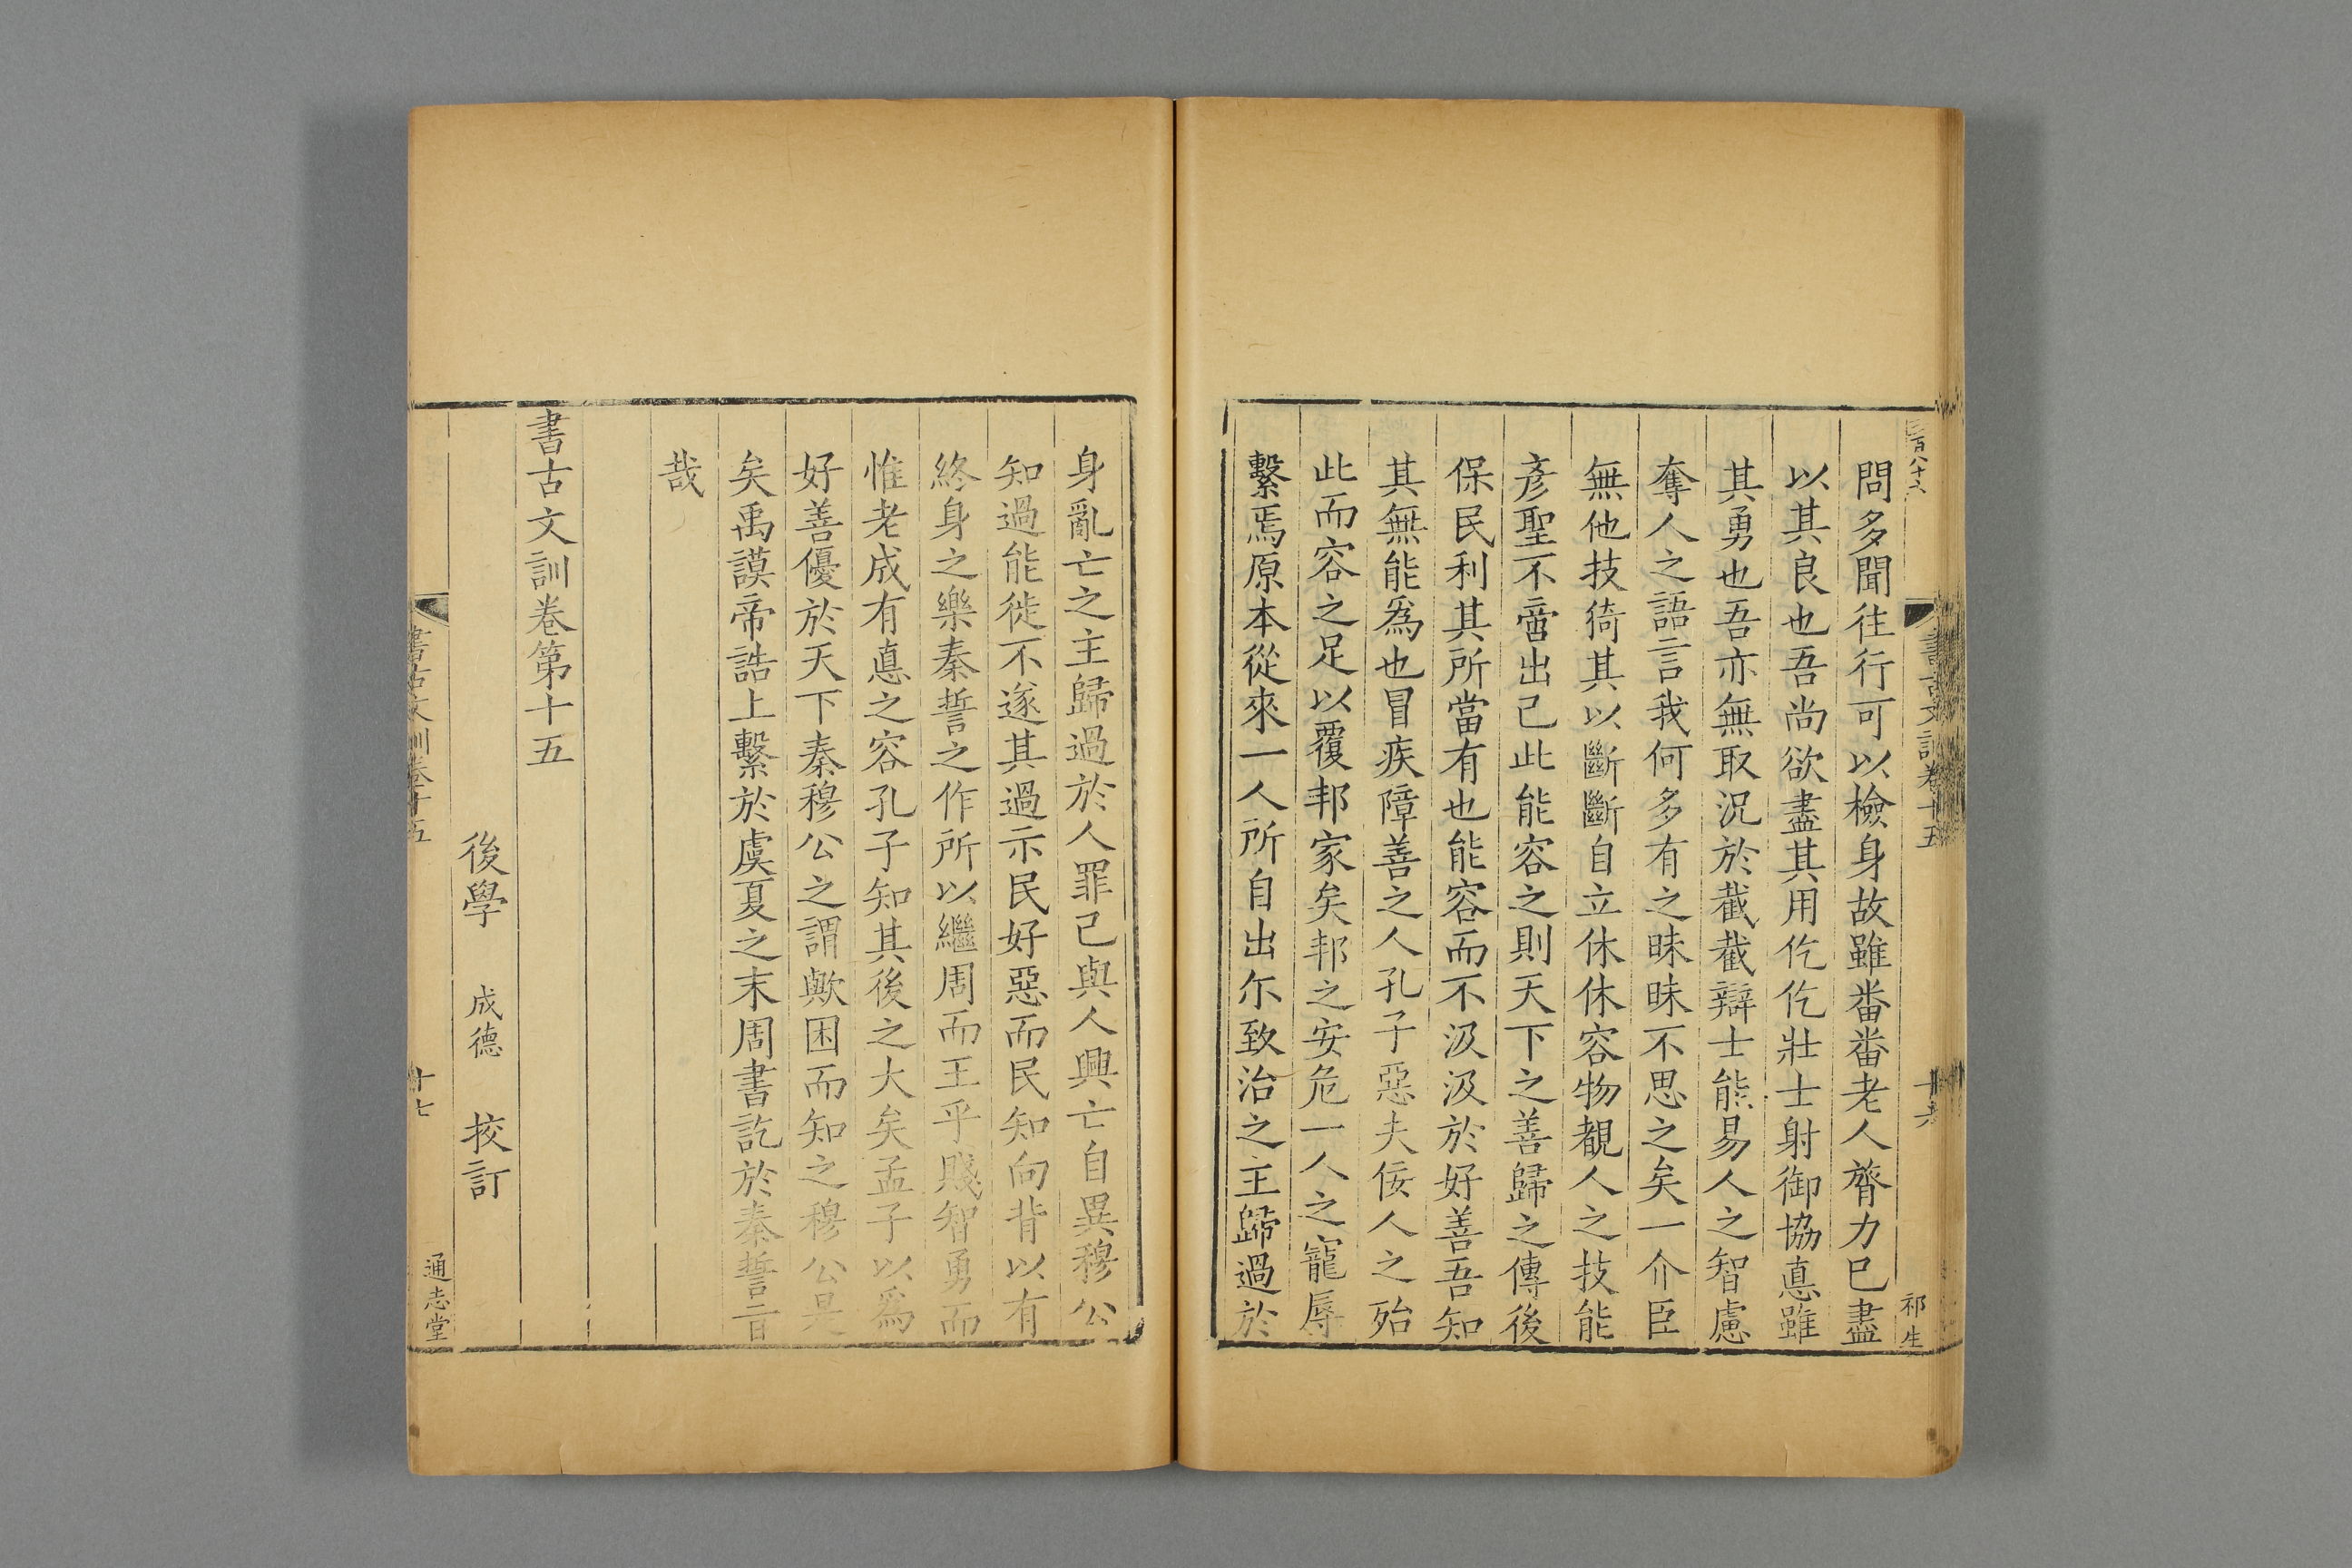 書古文訓卷十五
十六
祁生
問多聞往行可以檢身故雖番番老人膂力已盡
以其良也吾尚欲盡其用仡仡壯士射御協悳雖
其勇也吾亦無取況於截截辯士能易人之智慮
奪人之語言我何多有之昧昧不思之矣一介臣
無他技猗其以斷斷自立休休容物覩人之技能
彥聖不啻出己此能容之則天下之善歸之傳後
保民利其所當有也能容而不汲汲於好善吾知
其無能爲也冒疾障善之人孔子惡夫佞人之殆
此而容之足以覆邦家矣邦之安危一人之寵辱
繫焉原本從來一人所自出尓致治之主歸過於
身亂亡之主歸過於人罪己與人興亡自異穆公
知過能徙不遂其過示民好惡而民知向背以有
終身之樂秦誓之作所以繼周而王乎賤智勇而
惟老成有悳之容孔子知其後之大矣孟子以爲
好善優於天下秦穆公之謂歟困而知之穆公是
矣禹謨帝誥上繫於虞夏之末周書訖於秦誓旨
哉
書古文訓卷第十五
後學 成德 挍訂
書古文訓卷十五
十七
通志堂